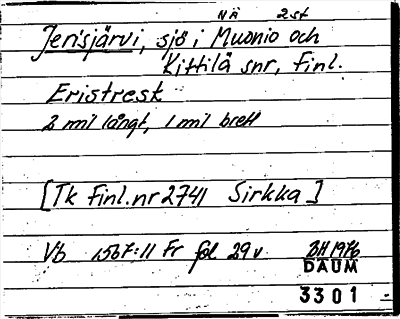 NÄ 2st
Jerisjärvi, sjö i Muonio och
Kittilä snr, Finl.
Eristresk
2 mil långt, 1 mil brett
[Tk Finl.nr 2741 Sirkka]
Vb 1567:11 Fr fol 29v BH 1976
DAUM
3301